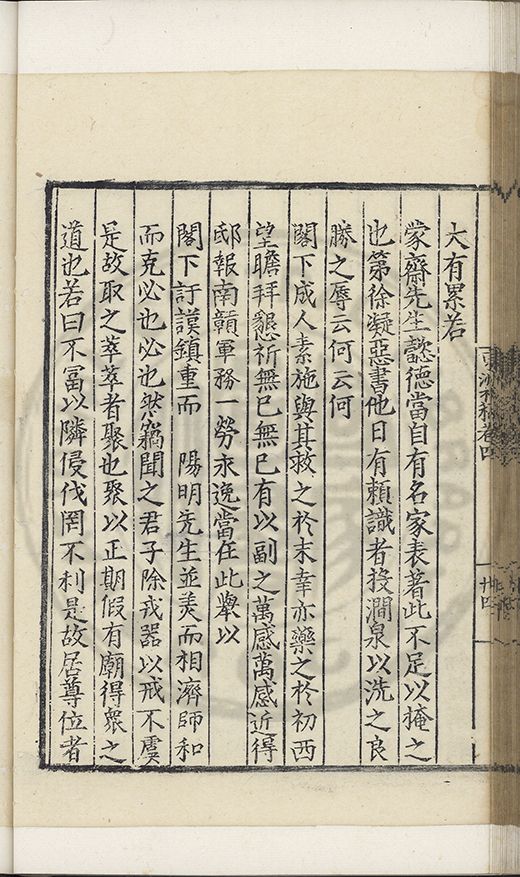 大有累若
蒙齋先生懿德當自有名家表著此不足以掩之
也第徐凝惡書他日有賴識者投澗泉以洗之良
勝之辱云何云何
閣下成人素施與其救之於末幸亦藥之於初西
望瞻拜懇祈無已無已有以副之萬感萬感近得
邸報南贛軍務一勞永逸當在此舉以
閣下訏謨鎮重而 陽明先生並美而相濟師和
而克必也必也然竊聞之君子除戎器以戒不虞
是故取之萃萃者聚也聚以正期假有廟得衆之
道也若曰不冨以隣侵伐罔不利是故居尊位者
卷四
廿四